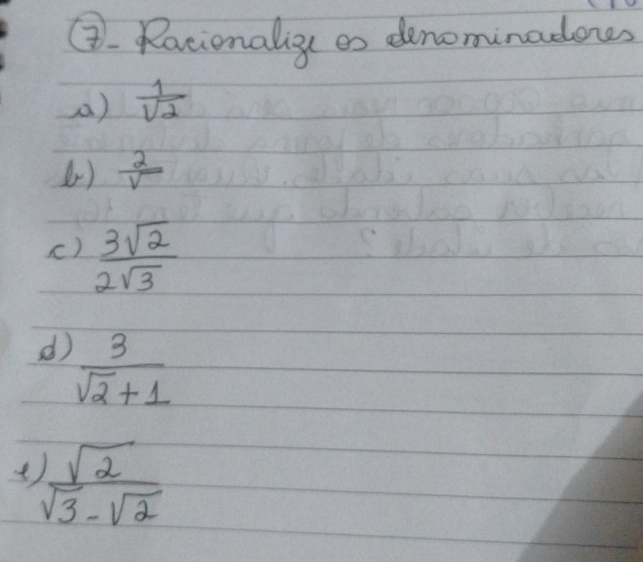 7- Racionalize os denominadores
a) 1/√2
b) 2/√
c) 3√2/2√3
d) 3/√2+1
e) √2/√3-√2